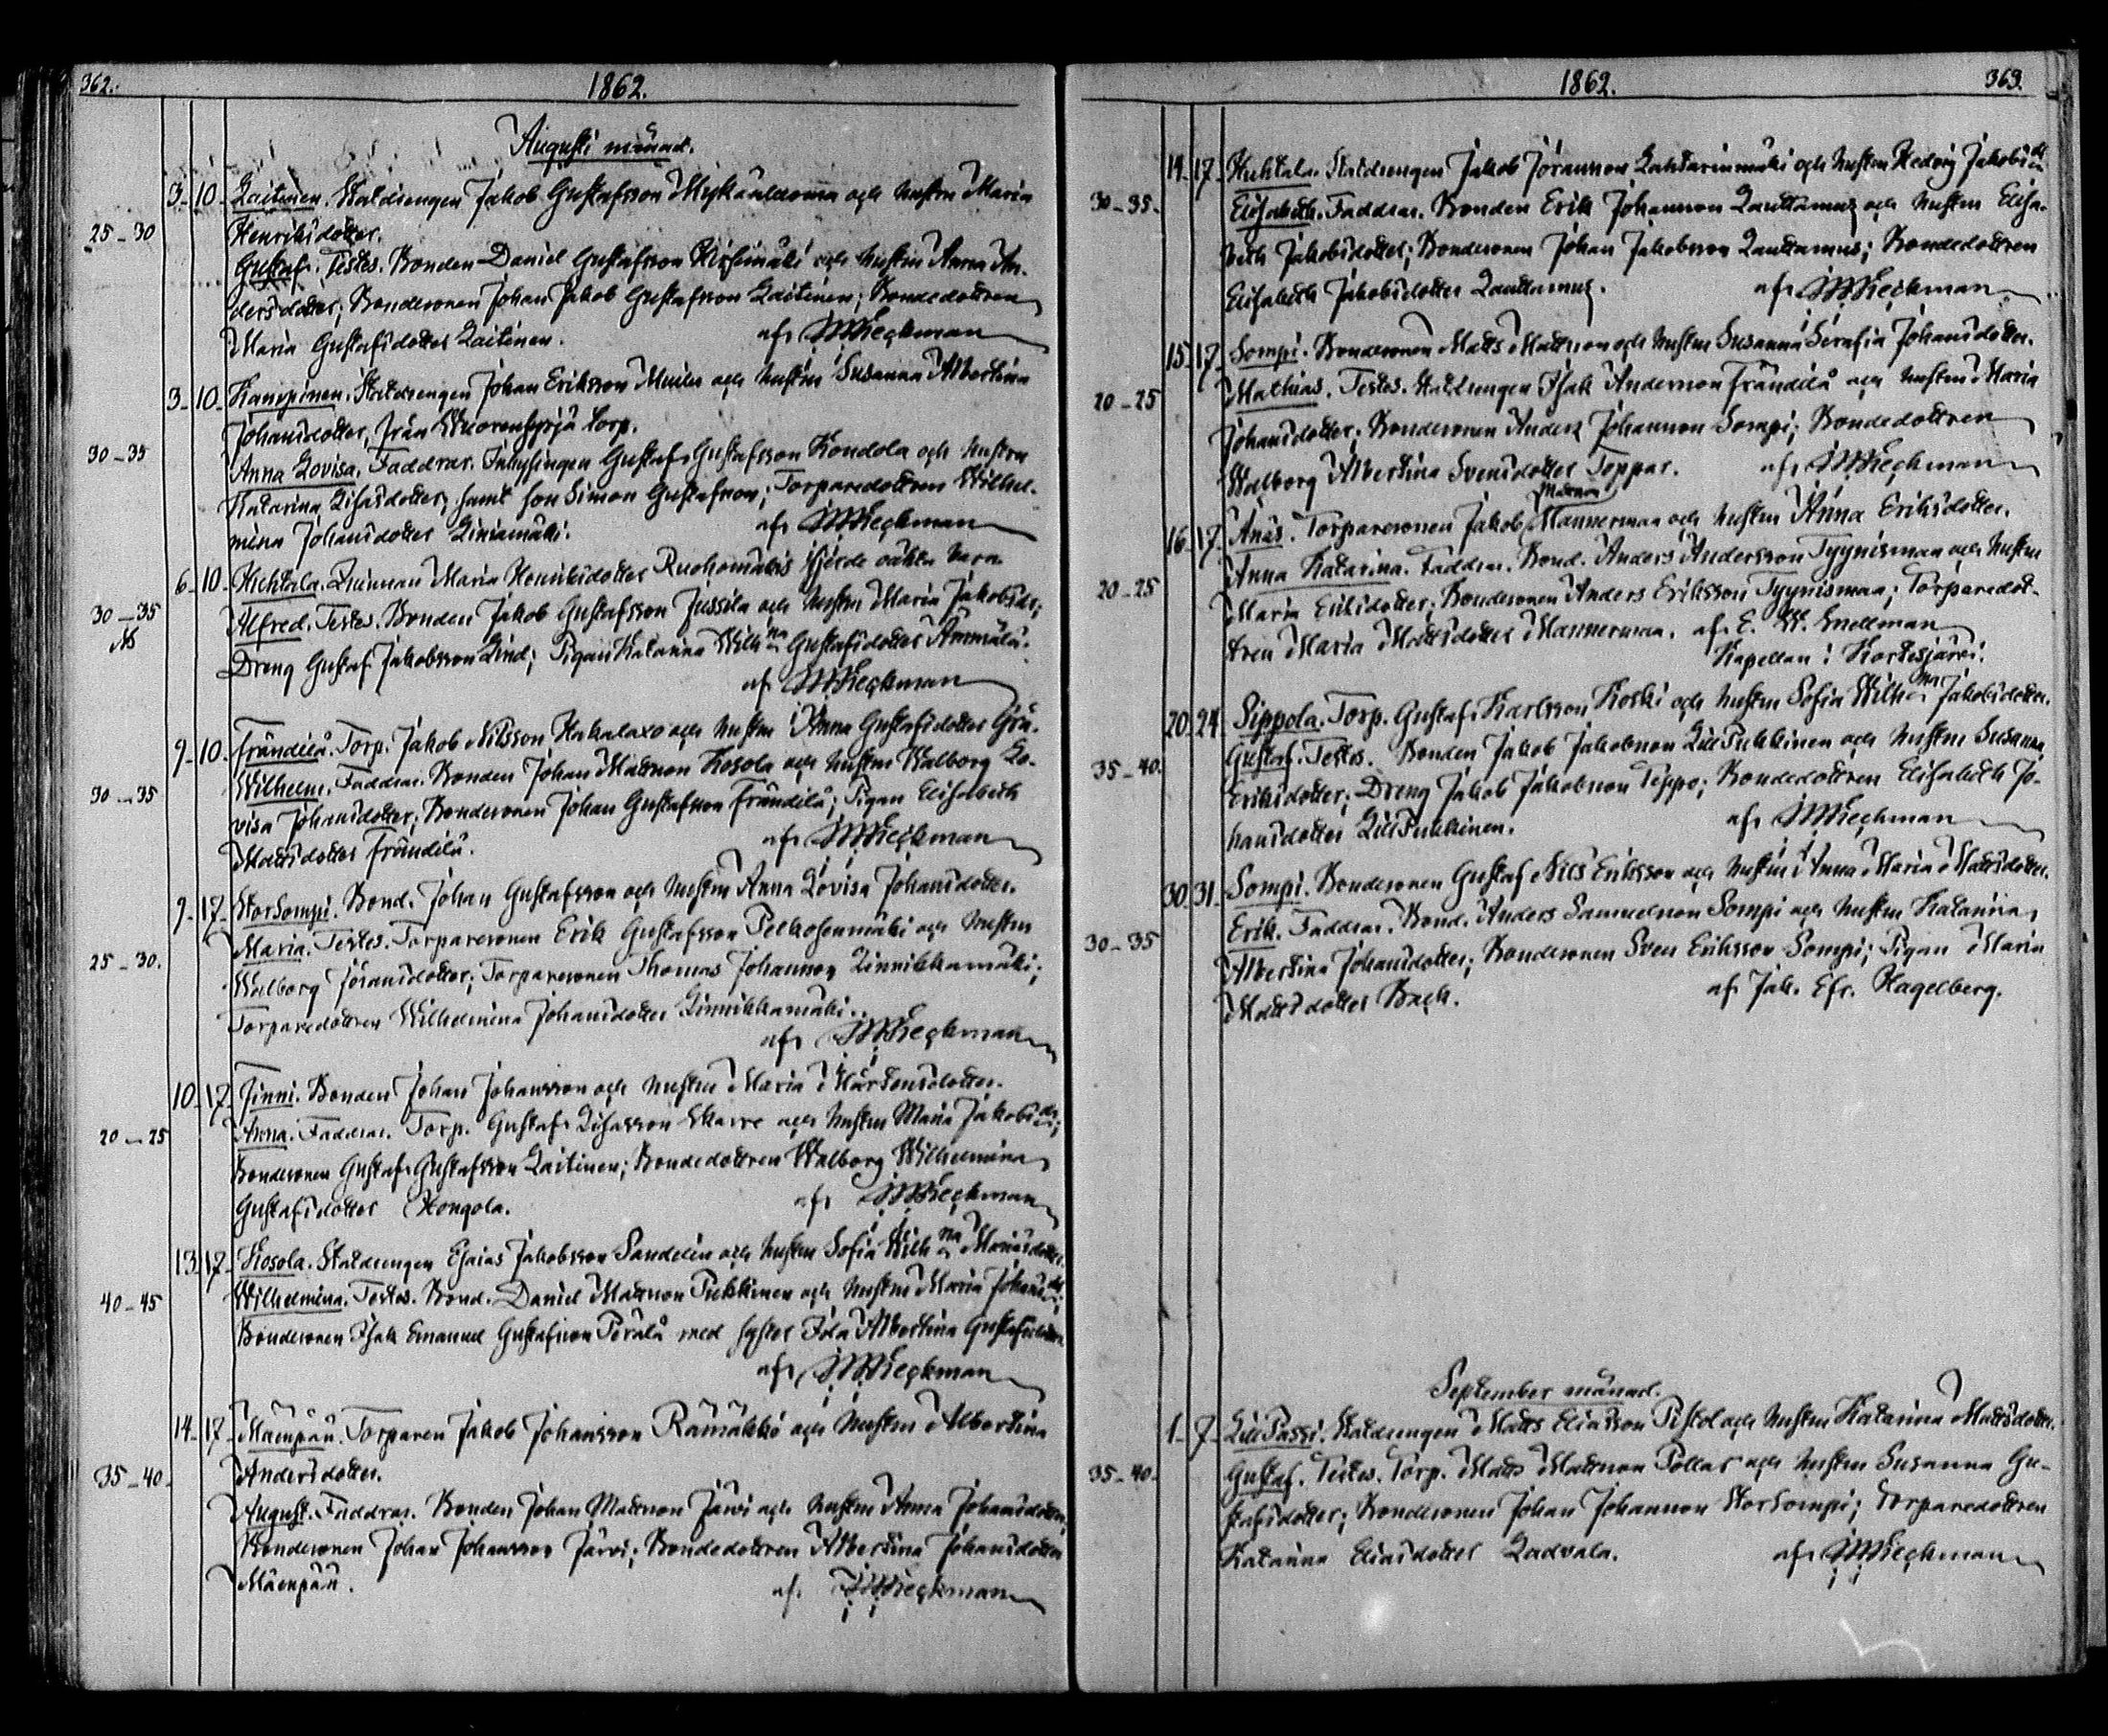 362. 1862.
Augusti månad.
3 10 Laitinen. Statdrengen Jakob Gustafsson Myllykangas och hustru Maria
25-30 Henriksdotter.
Gustaf. Testes. Bonden Daniel Gustafsson Hirsimäki och hustru Anna An-
dersdotter; Bondesonen Johan Jakob Gustafsson Laitinen; Bondedottren
Maria Gustafsdotter Laitinen. af
3 10 Kamppinen. Statdrengen Johan Eriksson och hustru Susanna Albertina
Johansdotter, från torp.
30-35 Anna Lovisa. Faddrar. Inhysingen Gustaf Gustafsson Kondola och hustru
Katarina Lisasdotter, samt son Simon Gustafsson; Torparedottren Wilhel-
mina Johansdotter Liniamäki. af
6 10 Huhtala. Maria Henriksdotter Ruohomäkis fjerde oäkta barn
30-35 Alfred. Testes. Bonden Jakob Gustafsson Jussila och hustru Maria Jakobsdr;
Dreng Gustaf Jakobsson Lind; Pigan Katarina Wilhna Gustafsdotter Ammälä.
af
9 10 Frändilä. Torp. Jakob Nilsson Hakalaxo och hustru Anna Gustafsdotter
30-35 Wilhelm. Faddrar. Bonden Johan Mattsson Kosola och hustru Walborg Lo-
visa Johansdotter; Bondesonen Johan Gustafsson Frändilä; Pigan Elisabeth
Mattsdotter Frändilä. af
9 17 StorSompi. Bond. Johan Gustafsson och hustru Anna Lovisa Johansdotter.
25-30. Maria. Testes. Torparesonen Erik Gustafsson Pelkosenmäki och hustru
Walborg Jöransdotter; Torparesonen Thomas Johansson Linnikkamäki;
Torparedottren Wilhelmina Johansdotter Linnikkamäki.
af
10 17 Finni. Bonden Johan Johansson och hustru Maria Mårtensdotter.
20-25 Anna. Faddrar. Torp. Gustaf Lisasson och hustru Maria Jakobsdr;
Bondesonen Gustaf Gustafsson Laitinen; Bondedottren Walborg Wilhelmina
Gustafsdotter Hongola. af
13 17 Kosola. Statdrengen Esaias Jakobsson Sandelin och hustru Sofia Wilhna
40-45 Wilhelmina. Testes. Bond. Daniel Mattsson Pukkinen och hustru Maria Johansdr;
Bondesonen Isak Emanuel Gustafsson Perälä med syster Ida Albertina Gustafsdotter.
af
14 17 Mäenpää. Torparen Jakob Johansson Rämäkkö och hustru Albertina
35-40 Andersdotter.
August. Faddrar. Bonden Johan Mattsson Järvi och hustru Anna Johansdotter;
Bondesonen Johan Johansson Järvi; Bondedottren Albertina Johansdotter
Mäenpää. af
1862. 363.
14 17 Huhtala. Statdrengen Jakob Jöransson Lahtarinmäki och hustru Hedvig Jakobsdr
30-35 Elisabeth. Faddrar. Bonden Erik Johansson Lauttamus och hustru Elisa-
beth Jakobsdotter; Bondesonen Johan Jakobsson Lauttamus; Bondedottren
Elisabeth Jakobsdotter Lauttamus. af
15 17 Sompi. Bondesonen Matts Mattsson och hustru Susanna Serafia Johansdotter.
20-25 Mathias. Testes. Statdrengen Isak Andersson Frändilä och hustru Maria
Johansdotter; Bondesonen Anders Johansson Sompi; Bondedottren
Walborg Albertina Svensdotter Toppar. af
16 17 Anäs. Torparesonen Jakob Mattsson Mannermaa och hustru Anna Eriksdotter.
20-25 Anna Katarina. Faddrar. Bond. Anders Andersson Tyynismaa och hustru
Maria Eriksdotter; Bondesonen Anders Eriksson Tyynismaa; Torparedot-
tren Maria Mattsdotter Mannermaa. af E. W. Snellman
Kapellan i Kortesjärvi.
20 24 Sippola. Torp. Gustaf Karlsson Koski och hustru Sofia Wilhna Jakobsdotter.
35-40. Gustaf. Testes. Bonden Jakob Jakobsson LillPukkinen och hustru Susanna
Eriksdotter; Dreng Jakob Jakobsson Teppo; Bondedottren Elisabeth Jo-
hansdotter LillPukkinen. af
30 31 Sompi. Bondesonen Gustaf Nils Eriksson och hustru Anna Maria Mattsdotter.
30-35 Erik. Faddrar. Bond. Anders Samuelsson Sompi och hustru Katarina
Albertina Johansdotter; Bondesonen Sven Eriksson Sompi; Pigan Maria
Mattsdotter Back. af Jak. Efr. Hagelberg.
September månad.
1 7 LillPassi. Statdrengen Matts Eliasson Pistol och hustru Katarina Mattsdotter.
35-40. Gustaf. Testes. Torp. Matts Mattsson Pollar och hustru Susanna Gu-
stafsdotter; Bondesonen Johan Johansson StorSompi; torparedottren
Katarina Eliasdotter Ladvala. af